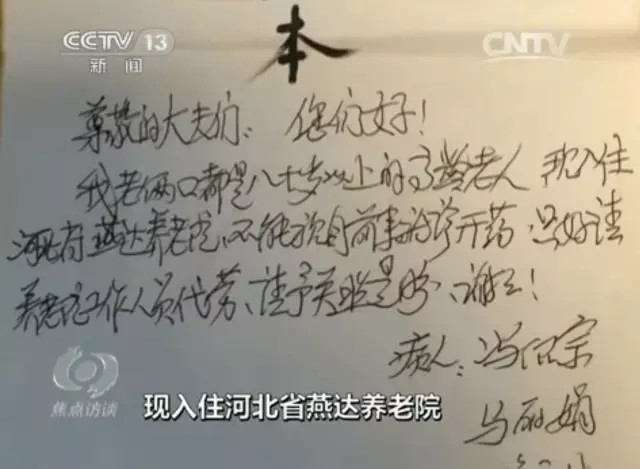 CCTV 13
新闻
CNTV
本
尊敬的大夫们：您们好！
我老俩口都是八十岁以上的高龄老人 现入住
河北省燕达养老院，不能亲自前来就诊开药，只好请
养老院工作人员代劳、请予关照是盼、谢谢！
病人：冯
马丽娟
焦点访谈
现入住河北省燕达养老院